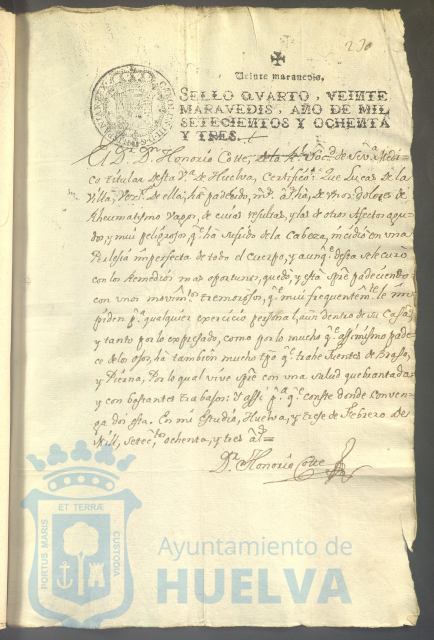 230
Veinte maravedis.
SELLO QVARTO, VEINTE
MARAVEDIS, AÑO DE MIL
SETECIENTOS Y OCHENTA
Y TRES.
El Dr. Dn. Honorio Cotte, de la Rl. Socd. de Seva. Medi-
co titular desta Va. de Huelva, Certifico: Que Lucas de la
Villa, Vezo. de ella, ha padecido, ms. as. ha, de unos dolores de
Rheumatismo vago, de cuias resultas, y las de otros afectos agu-
dos, y mui peligrosos qe. ha sufrido de la Cabeza, incidió en una
Perlesia imperfecta de todo el cuerpo, y aunqe. desta se le curó
con los Remedios mas oportunos, quedó, y está spre. padeciendo
con unos movimtos. tremorosos, qe. mui frequentemte. le im-
piden pa. qualquier exercicio personal, aun dentro de su Casa:
y tanto por lo expresado, como por lo mucho qe. assimismo pade-
ce de los ojos, ha tambien mucho tpo. qe. trahe fuentes de Brazo,
y Pierna, Por lo qual vive spre. con una salud quebrantada
y con bastantes trabajos: Y assi pa. qe. conste donde conven-
ga doi esta. En mi Estudio, Huelva, y trese de Febrero de
Mill, setectos. ochenta, y tres as.=
Dr. Honorio Cotte
PORTUS MARIS
ET TERRÆ
CUSTODIA
Ayuntamiento de
HUELVA